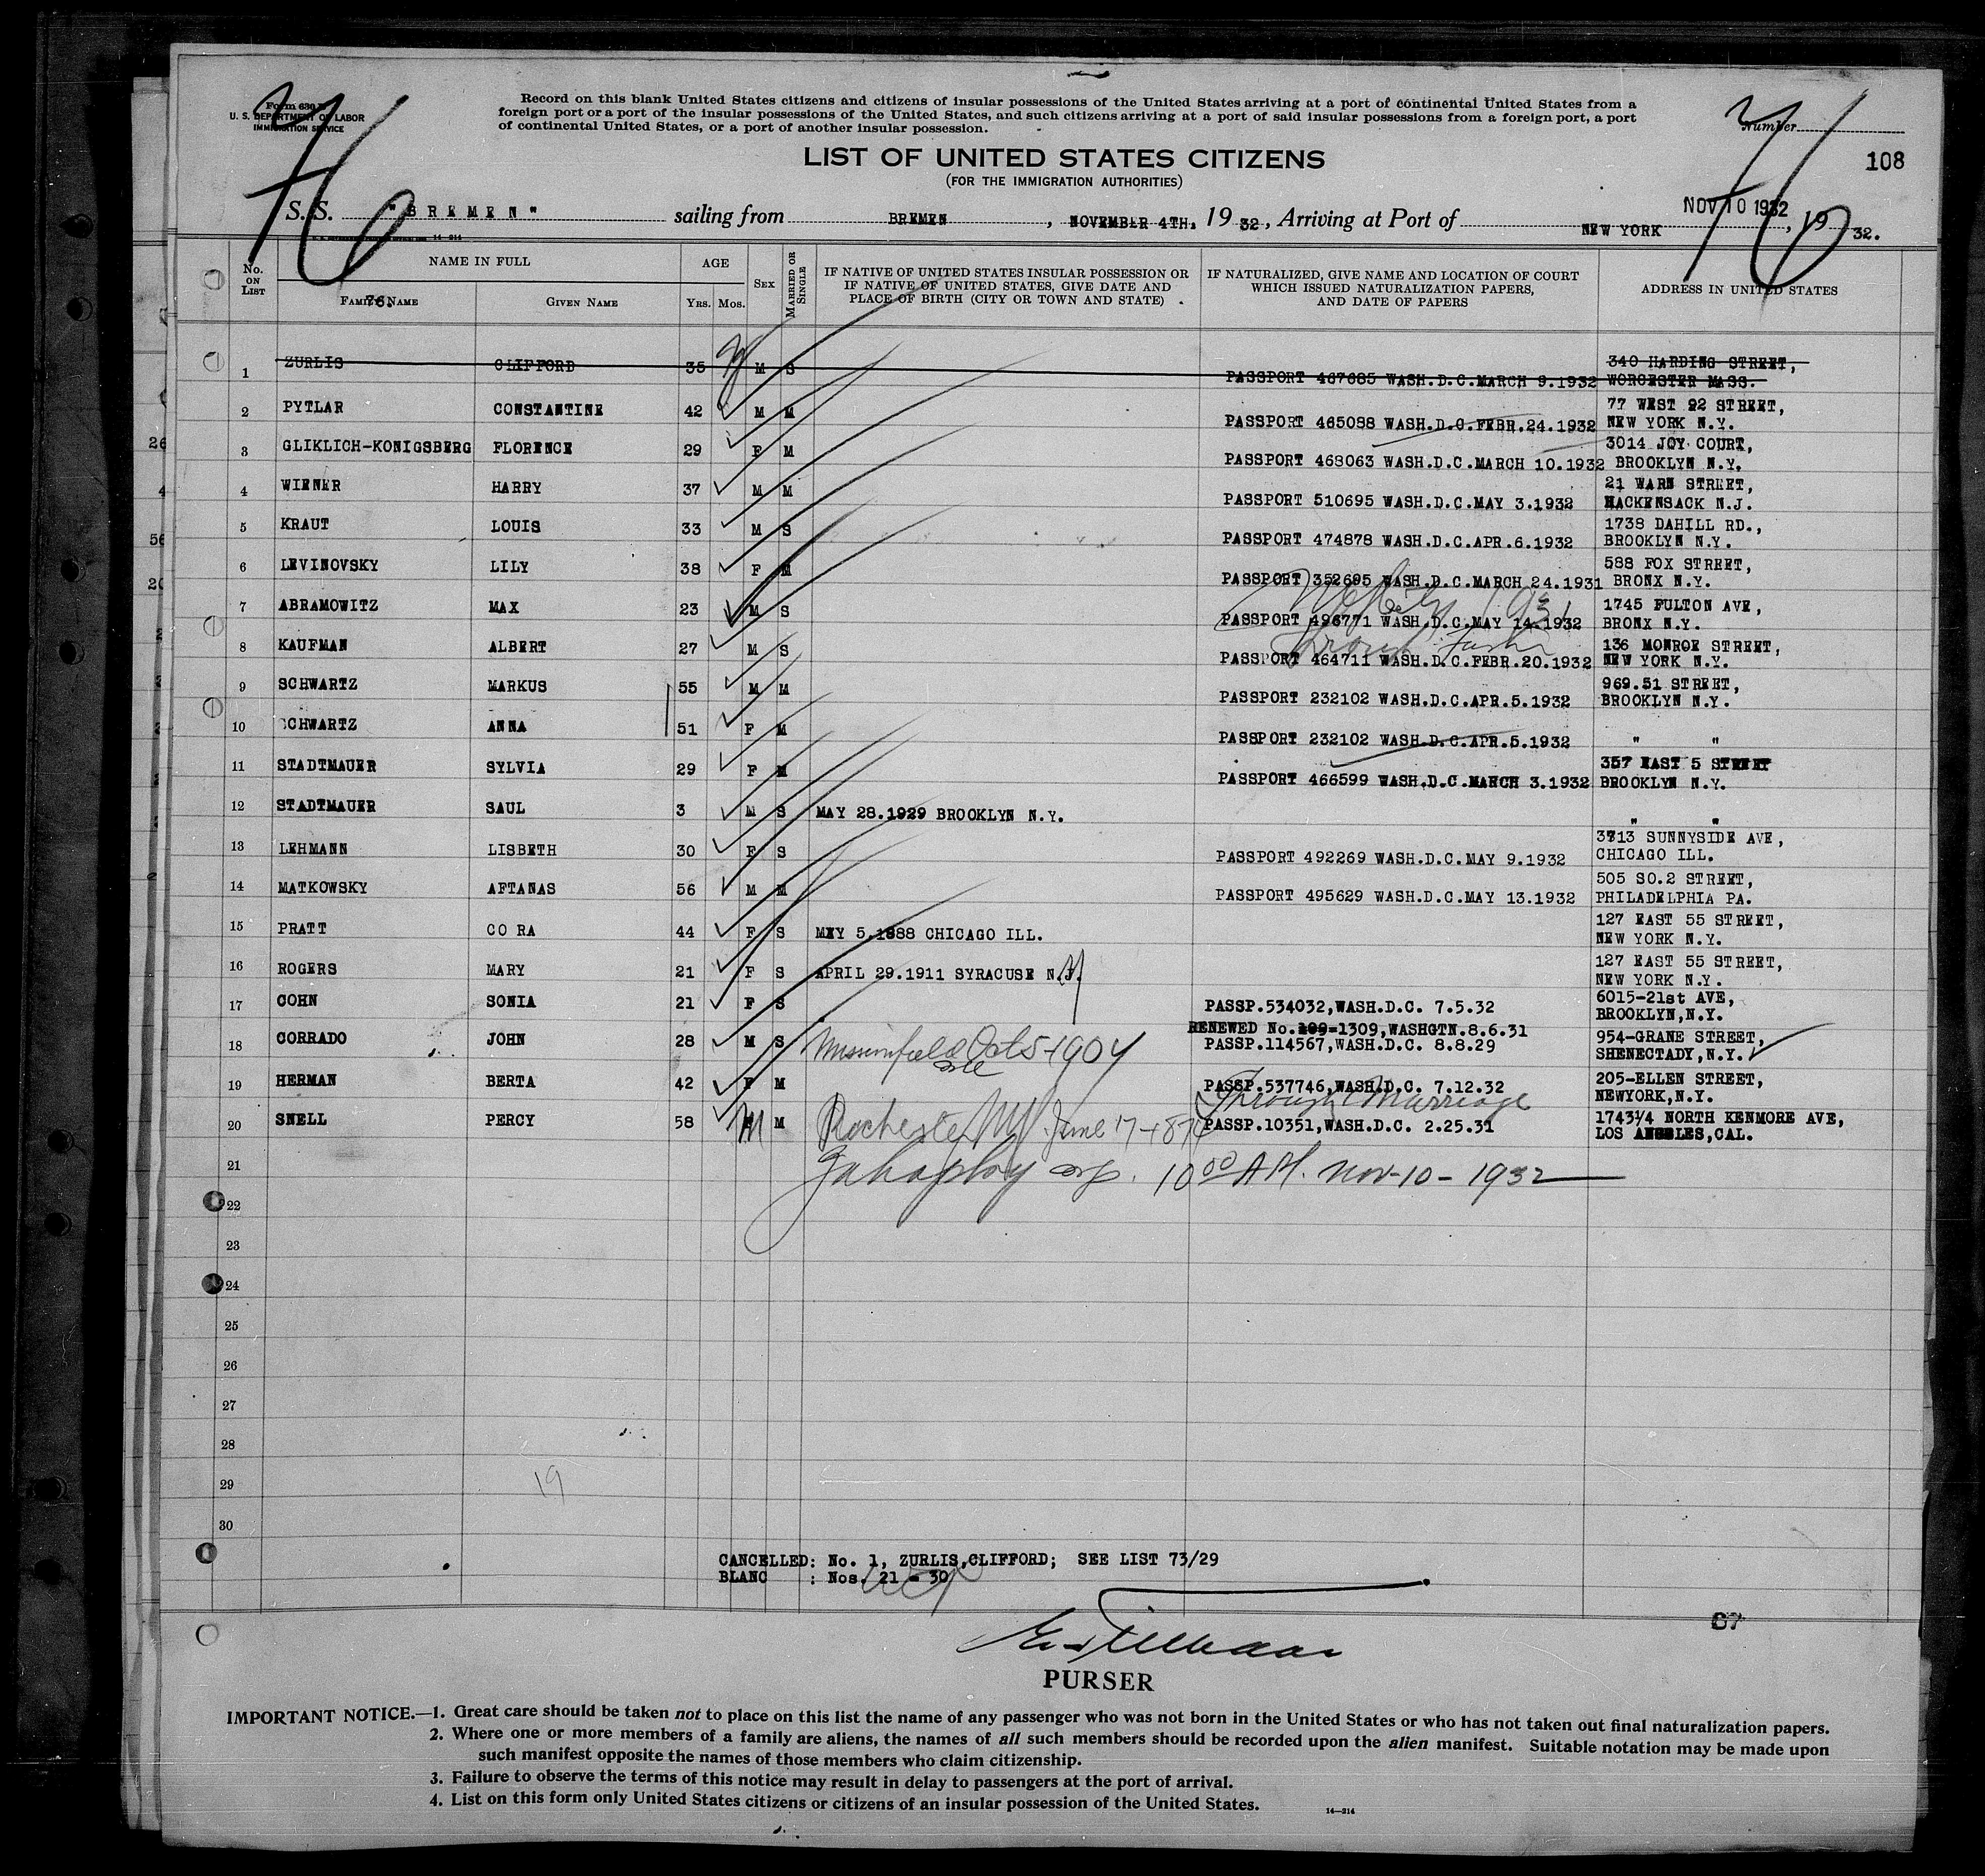 Form 630
U. S. DEPARTMENT OF LABOR
IMMIGRATION SERVICE
Record on this blank United States citizens and citizens of insular possessions of the United States arriving at a port of continental United States from a
foreign port or a port of the insular possessions of the United States, and such citizens arriving at a port of said insular possessions from a foreign port, a port
of continental United States, or a port of another insular possession.
Number
76
76
108
LIST OF UNITED STATES CITIZENS
(FOR THE IMMIGRATION AUTHORITIES)
S. S. "BREMEN" sailing from BREMEN, NOVEMBER 4TH, 1932, Arriving at Port of NEW YORK NOV 10 1932, 1932.
No. ON LIST
NAME IN FULL
FAMILY NAME
76.
GIVEN NAME
AGE
YRS. MOS.
SEX
MARRIED OR SINGLE
IF NATIVE OF UNITED STATES INSULAR POSSESSION OR
IF NATIVE OF UNITED STATES, GIVE DATE AND
PLACE OF BIRTH (CITY OR TOWN AND STATE)
IF NATURALIZED, GIVE NAME AND LOCATION OF COURT
WHICH ISSUED NATURALIZATION PAPERS,
AND DATE OF PAPERS
ADDRESS IN UNITED STATES
1 ZURLIS CLIFFORD 35 M S PASSPORT 467685 WASH.D.C.MARCH 9.1932 340 HARDING STREET,
WORCESTER MASS.
2 PYTLAR CONSTANTINE 42 M M PASSPORT 465088 WASH.D.C.FEBR.24.1932 77 WEST 92 STREET,
NEW YORK N.Y.
3 GLIKLICH-KONIGSBERG FLORENCE 29 F M PASSPORT 468063 WASH.D.C.MARCH 10.1932 3014 JOY COURT,
BROOKLYN N.Y.
4 WIENER HARRY 37 M M PASSPORT 510695 WASH.D.C.MAY 3.1932 21 WARN STREET,
HACKENSACK N.J.
5 KRAUT LOUIS 33 M S PASSPORT 474878 WASH.D.C.APR.6.1932 1738 DAHILL RD.,
BROOKLYN N.Y.
6 LEVINOVSKY LILY 38 F M PASSPORT 352695 WASH.D.C.MARCH 24.1931 588 FOX STREET,
BRONX N.Y.
7 ABRAMOWITZ MAX 23 M S PASSPORT 496771 WASH.D.C.MAY 14.1932 1745 FULTON AVE,
BRONX N.Y.
8 KAUFMAN ALBERT 27 M S PASSPORT 464711 WASH.D.C.FEBR.20.1932 136 MONROE STREET,
NEW YORK N.Y.
9 SCHWARTZ MARKUS 55 M M PASSPORT 232102 WASH.D.C.APR.5.1932 969.51 STREET,
BROOKLYN N.Y.
10 SCHWARTZ ANNA 51 F M PASSPORT 232102 WASH.D.C.APR.5.1932 " "
11 STADTMAUER SYLVIA 29 F M PASSPORT 466599 WASH.D.C.MARCH 3.1932 357 EAST 5 STREET
BROOKLYN N.Y.
12 STADTMAUER SAUL 3 M S MAY 28.1929 BROOKLYN N.Y. " "
13 LEHMANN LISBETH 30 F S PASSPORT 492269 WASH.D.C.MAY 9.1932 3713 SUNNYSIDE AVE,
CHICAGO ILL.
14 MATKOWSKY AFTANAS 56 M M PASSPORT 495629 WASH.D.C.MAY 13.1932 505 SO.2 STREET,
PHILADELPHIA PA.
15 PRATT CO RA 44 F S MAY 5.1888 CHICAGO ILL. 127 EAST 55 STREET,
NEW YORK N.Y.
16 ROGERS MARY 21 F S APRIL 29.1911 SYRACUSE N.Y. 127 EAST 55 STREET,
NEW YORK N.Y.
17 COHN SONIA 21 F S PASSP.534032,WASH.D.C. 7.5.32 6015-21st AVE,
BROOKLYN,N.Y.
RENEWED No.109-1309,WASHGTN.8.6.31
18 CORRADO JOHN 28 M S Oct 5-1904 PASSP.114567,WASH.D.C. 8.8.29 954-GRANE STREET,
SHENECTADY,N.Y.
19 HERMAN BERTA 42 F M PASSP.537746,WASH.D.C. 7.12.32 205-ELLEN STREET,
NEWYORK,N.Y.
Through Marriage
20 SNELL PERCY 58 M M Rochester NY June 17-1874 PASSP.10351,WASH.D.C. 2.25.31 1743¼ NORTH KENMORE AVE,
LOS ANGELES,CAL.
21 10 00 AM. Nov-10-1932
22
23
24
25
26
27
28
29
19
30
CANCELLED: No. 1, ZURLIS,CLIFFORD; SEE LIST 73/29
BLANC : Nos. 21 - 30
67
PURSER
IMPORTANT NOTICE.—1. Great care should be taken not to place on this list the name of any passenger who was not born in the United States or who has not taken out final naturalization papers.
2. Where one or more members of a family are aliens, the names of all such members should be recorded upon the alien manifest. Suitable notation may be made upon
such manifest opposite the names of those members who claim citizenship.
3. Failure to observe the terms of this notice may result in delay to passengers at the port of arrival.
4. List on this form only United States citizens or citizens of an insular possession of the United States.
14—314